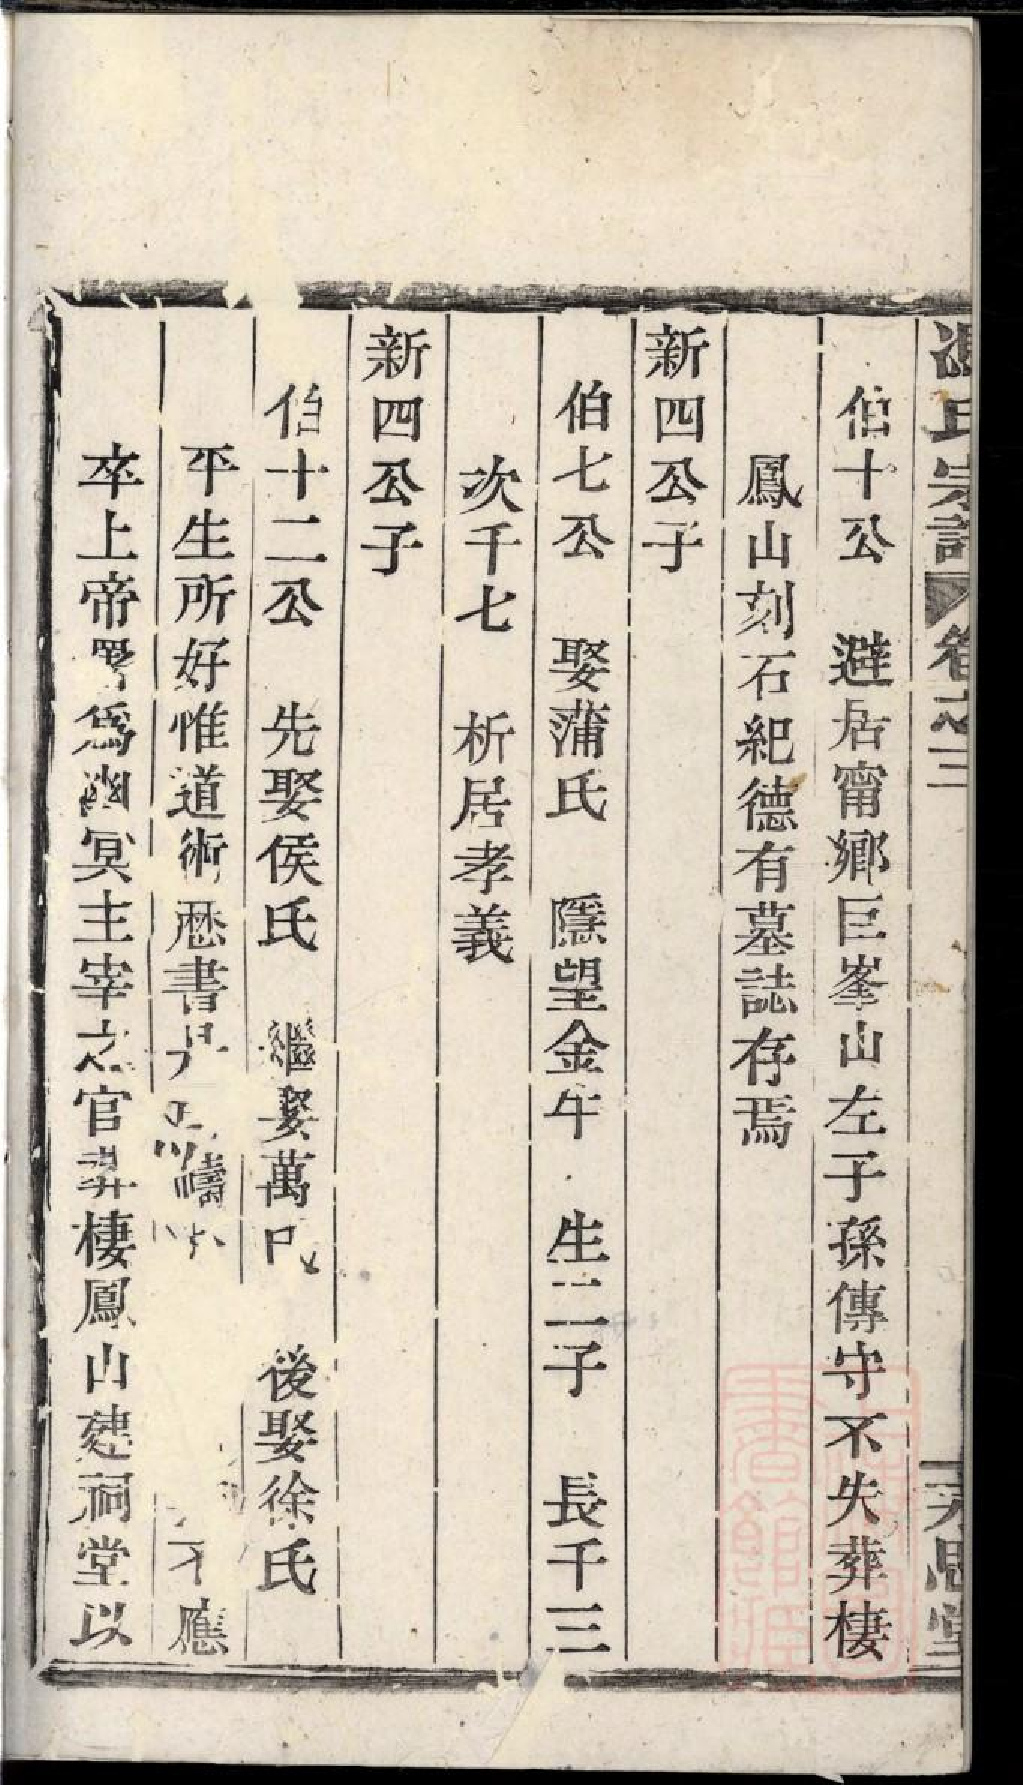 氏宗譜 卷之三
伯十公 避居甯鄉巨峯山左子孫傳守不失葬棲
鳳山刻石紀德有墓誌存焉
新四公子
伯七公 娶蒲氏 隱望金午 生二子 長千三
次千七 析居孝義
新四公子
伯十二公 先娶侯氏 繼娶萬氏 後娶徐氏
平生所好惟道術歷書 禱 不應
卒上帝署爲幽冥主宰之官葬棲鳳山建祠堂以
思堂